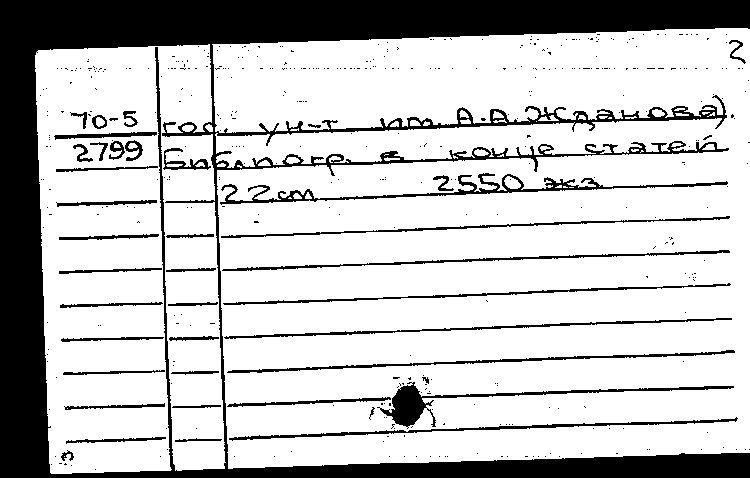 2
70-5 гос. ун-т им. А.А.Жданова).
2799 Библиогр. в конце статей
22 cm 2550 экз
3